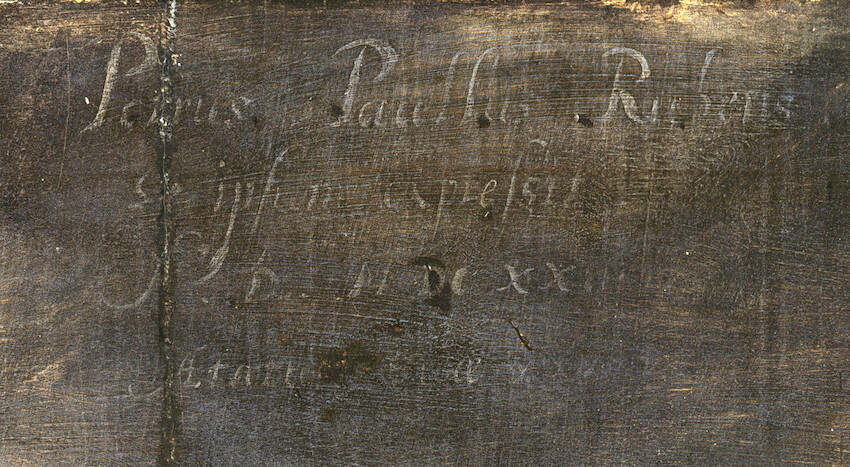 Petrus Paullus Rubens
se ipsum expressit
A D MDCXXIII
Ætatis suæ